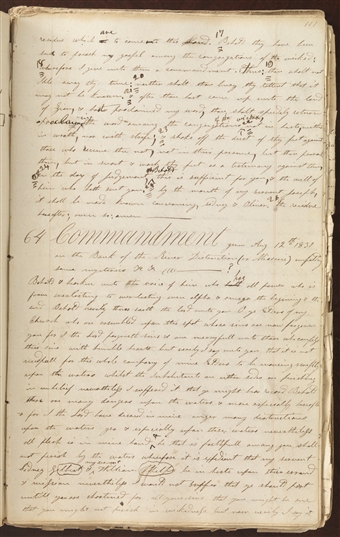 111
residue which are to come unto this land. Behold they have been
sent to preach my gospel among the congregations of the wicked;
wherefore I give unto them a commandment, thus: thou shalt not
idle away thy time; neither shalt thou bury thy talent that it
may not be known. & after thou hast come up unto the land
of Zion, & hast proclaimed my word, thou shalt speedily return
proclaiming the word among the congregations of the wicked, not in haste, neither
in wrath nor with strife; & shake off the dust of thy feet against
those who receive thee not, not in their presence, lest thou provoke
them, but in secret, & wash thy feet as a testimony against them
in the day of judgement. Behold this is sufficient for you, & the will of
him who hath sent you. & by the mouth of my servant Joseph
it shall be made known concerning Sidney & Oliver. the residue
hereafter, even so, amen.
64 Commandment given Aug 12th 1831
on the Bank of the River Destruction (or Missorie) unfolding
some mysteries &c &c
Behold & hearken unto the voice of him who has all power who is
from everlasting to everlasting even alpha & omega the begining & the
end. Behold verily thus saith the Lord unto you O ye Elders of my
Church who are assembled upon this spot whose sins are now forgiven
you for I the Lord forgiveth sins & am mercyfull unto those who confess
their sins with humble hearts but verily I say unto you that it is not
needfull for this whole company of mine Elders to be moveing swiftly
upon the waters whilst the inhabitants on either side are perishing
in unbelief nevertheless I suffered it that ye might bear record Behold
there are many dangers upon the waters & more especially hereafter
for I the Lord have decreed in mine anger many destructions
upon the waters yea & especially upon these waters nevertheless
all flesh is in mine hand & he that is faithfull among you shall
not perish by the waters wherefore it is expedient that my servent
Sidney Gilbert & my servent William Phelps be in haste upon their errand
& mission nevertheless I would not suffer that ye should part
untill you are chastened for all your sins that you might be one
that you might not perish in wickedness but now verily I say it